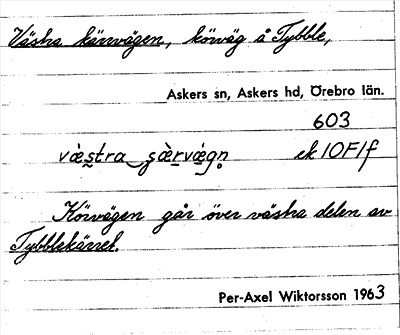 Västra kärrvägen, körväg å Tybble,
Askers sn, Askers hd, Örebro län.
603
væ̀stra ɕæ̀rvægn̥ ek 10F1f
Körvägen går över västra delen av
Tybblekärret.
Per-Axel Wiktorsson 1963